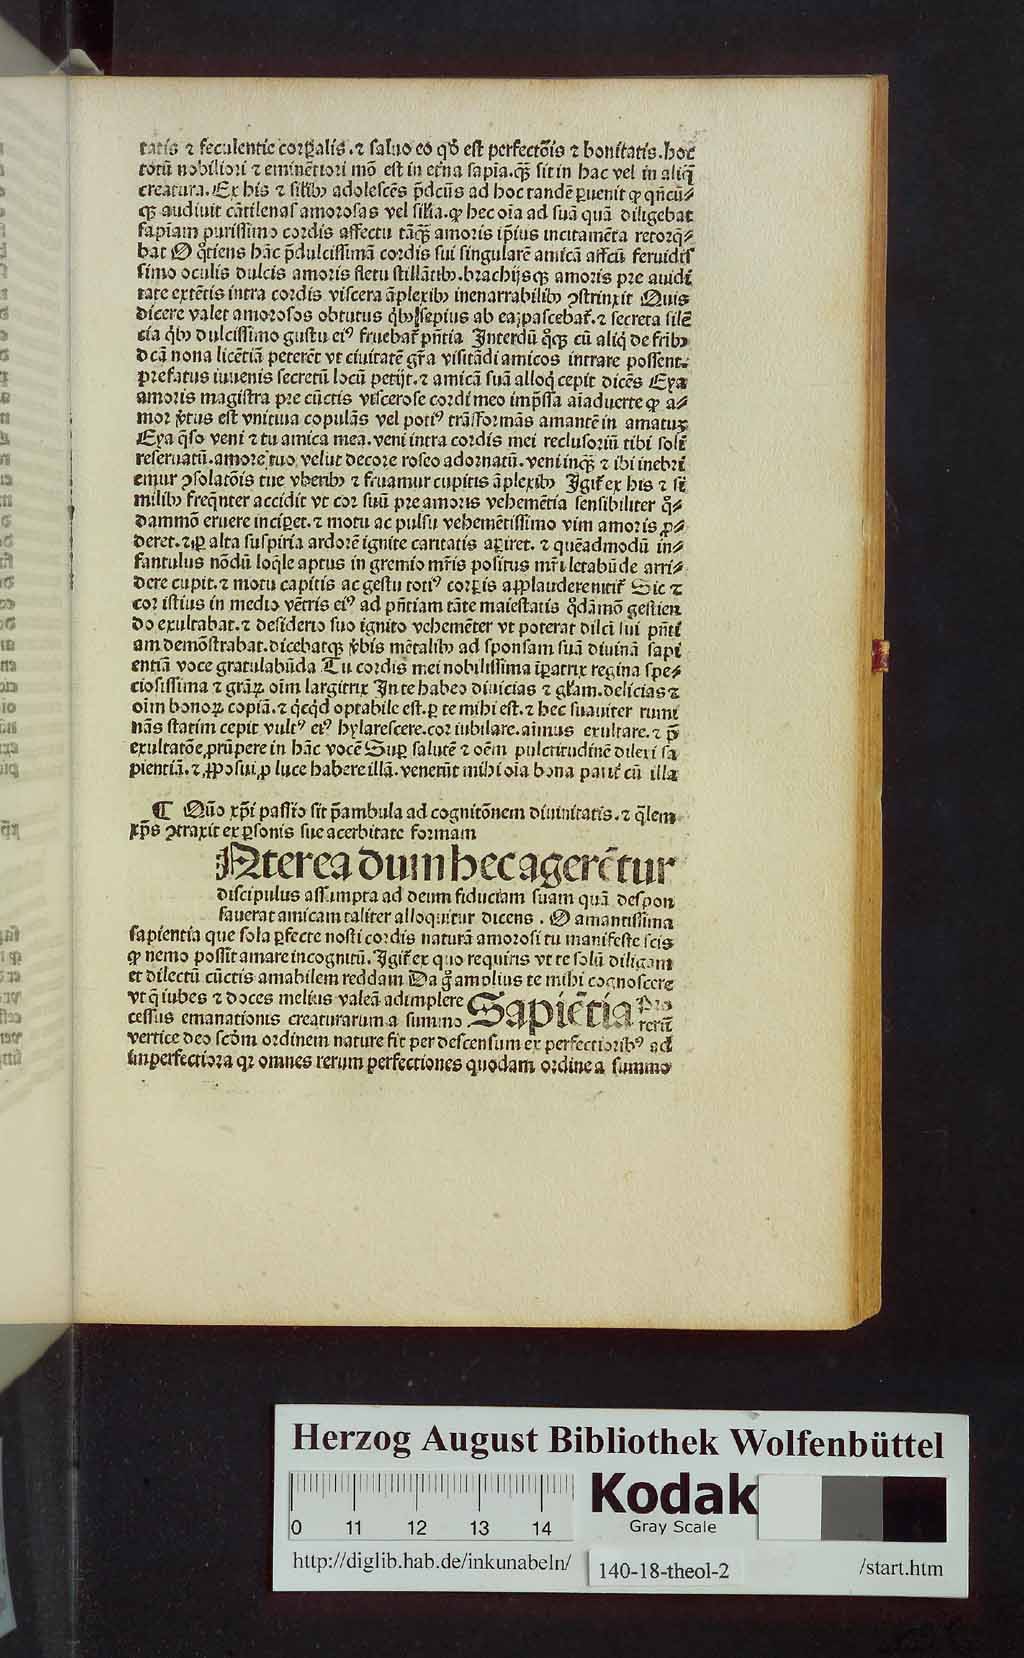 tatis ⁊ feculentie corꝑalis.⁊ saluo eo qđ est perfectōis ⁊ bonitatis.hoc
totū nobiliori ⁊ eminētiori mō est in etṉa sapīa.qꝫ sit in hac vel in aliq̄
creatura.Ex his ⁊ silibꝫ adolescēs p̄dcūs ad hoc tandē ꝑuenit ꝙ qn̄cū⸗
qꝫ audiuit cātilenas amorosas vel silīa.ꝙ hec oīa ad suā quā diligebat
sapīam purissimo cordis affectu tāqꝫ amoris ip̄ius incitamēta retorq̄⸗
bat O qͦtiens hāc p̄dulcissimā cordis sui singularē amicā affcū feruidis
simo oculis dulcis amoris fletu stillātibꝫ.brachijsqꝫ amoris pre auidi
tate extētis intra cordis viscera āplexibꝫ inenarrabilibꝫ ꝯstrinxit Quis
dicere valet amorosos obtutus qͥbꝫ sepius ab ea pascebat̄.⁊ secreta silē
cia qͥbꝫ dulcissimo gustu eiꝰ fruebat̄ pn̄tia Interdū qͦqꝫ cū aliq̄ de fribꝫ
dcā nona licētiā peterēt vt ciuitatē gr̄a visitādi amicos intrare possent.
prefatus iuuenis secretū locū petijt.⁊ amicā suā alloqͥ cepit dicēs Eya
amoris magistra pre cūctis viscerose cordi meo imp̄ssa aīaduerte ꝙ a⸗
mor v̓tus est vnitiua copulās vel potiꝰ trāsformās amantē in amatuꝫ
Eya q̄so veni ⁊ tu amica mea.veni intra cordis mei reclusoriū tibi soli
reseruatū.amore tuo velut decore roseo adornatū.veni inqꝫ ⁊ ibi inebri
emur ꝯsolatōis tue vberibꝫ ⁊ fruamur cupitis āplexibꝫ Igit̄ ex his ⁊ si
milibꝫ freqn̄ter accidit vt cor suū pre amoris vehemētia sensibiliter qͦ⸗
dammō eruere inciꝑet.⁊ motu ac pulsu vehemētissimo vim amoris ꝓ⸗
deret.⁊ ꝑ alta suspiria ardorē ignite caritatis aꝑiret.⁊ quēadmodū in⸗
fantulus nōdū loqͤle aptus in gremio mr̄is positus mr̄i letabūde arri⸗
dere cupit.⁊ motu capitis ac gestu totiꝰ corꝑis applaudere nitit̄ Sic ⁊
cor istius in medio vētris eiꝰ ad pn̄tiam tāte maiestatis qͦdāmō gestien
do exultabat.⁊ desiderio suo ignito vehemēter vt poterat dilci sui pn̄ti
am demōstrabat.dicebatqꝫ v̓bis mētalibꝫ ad sponsam suā diuinā sapi
entiā voce gratulabūda Tu cordis mei nobilissima iꝑatrix regina spe⸗
ciosissima ⁊ grāꝝ oīm largitrix In te habeo diuicias ⁊ glīam.delicias ⁊
oīm bonoꝝ copiā.⁊ qͥcqͥd optabile est.ꝑ te mihi est.⁊ hec suauiter rumi
nās statim cepit vultꝰ eiꝰ hylarescere.cor iubilare.aīmus exultare.⁊ p̄
exultatōe ꝓrūpere in hāc vocē Suꝑ salutē ⁊ oēm pulcritudinē dilexi sa
pientiā.⁊ ꝓposui ꝓ luce habere illā.venerūt mihi oīa bona parit̄ cū illa
¶ Quō xp̄i passio sit p̄ambula ad cognitōnem diuinitatis.⁊ qͣlem
xp̄s ꝯtraxit ex ꝑsonis sue acerbitate formam
Nterea dum hec agerētur
discipulus assumpta ad deum fiduciam suam quā despon
sauerat amicam taliter alloquitur dicens . O amantissima
sapientia que sola ꝑfecte nosti cordis naturā amorosi tu manifeste scis
ꝙ nemo possit amare incognitū.Igit̄ ex quo requiris vt te solū diligam
et dilectū cūctis amabilem reddam Da gͦ amplius te mihi cognoscere
vt q̄ iubes ⁊ doces melius valeā adimplere Sapiētia Pro
cessus emanationis creaturarum a summo rerū
vertice deo scd̄m ordinem nature fit per descensum ex perfectioribꝰ ad
imperfectiora qꝛ omnes rerum perfectiones quodam ordine a summo
Herzog August Bibliothek Wolfenbüttel
0 11 12 13 14
Kodak
Gray Scale
http://diglib.hab.de/inkunabeln/ 140-18-theol-2 /start.htm